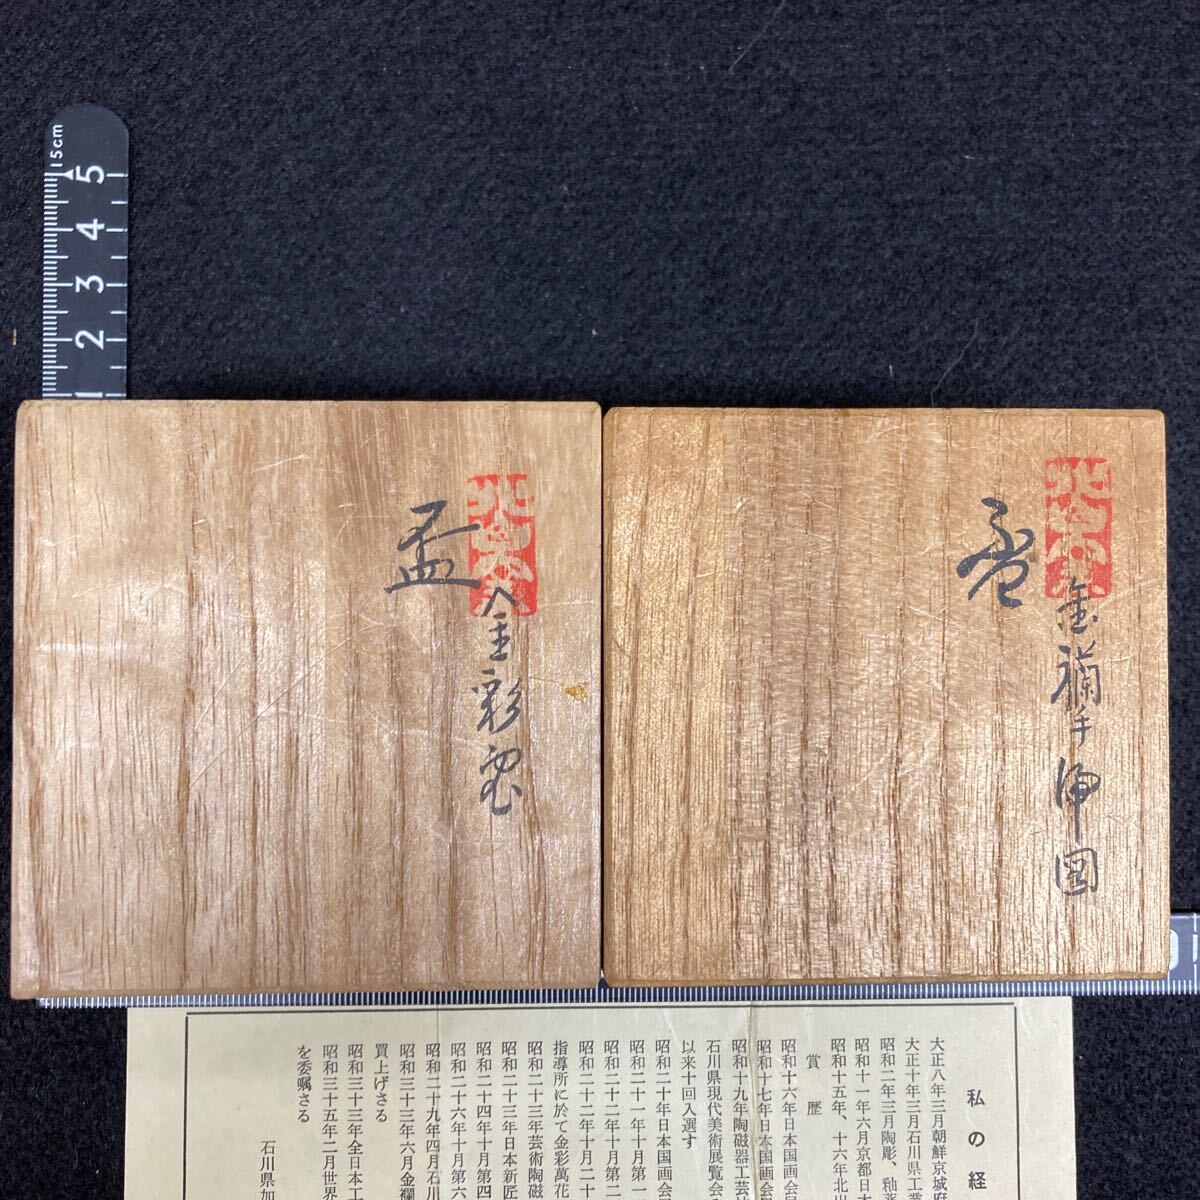 15cm
5
4
3
2
1
金彩
盃
金襴手
図
私の経
大正八年三月朝鮮京城府
大正十年三月石川県工業
昭和二年三月陶彫、釉薬
昭和十一年六月京都日本
昭和十五年、十六年北出
賞歴
昭和十六年日本国画会
昭和十七年日本国画会
昭和十九年陶磁器工芸
石川県現代美術展覧会
以来十回入選す
昭和二十年日本国画会
昭和二十一年十月第一
昭和二十二年十月第二
昭和二十二年十月二十
指導所に於て金彩萬花
昭和二十三年芸術陶磁
昭和二十三年日本新匠
昭和二十四年十月第四
昭和二十六年十月第六
昭和二十九年四月石川
昭和三十三年六月金襴
買上げさる
昭和三十三年全日本工
昭和三十五年二月世界
を委嘱さる
石川県加